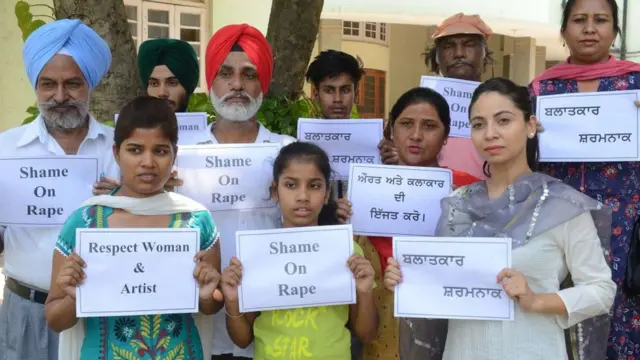 Shame
On
Rape
Shame
On
Rape
ਬਲਾਤਕਾਰ
ਸ਼ਰਮਨਾਕ
Shame
On
Rape
ਬਲਾਤਕਾਰ
ਸ਼ਰਮਨਾਕ
ਔਰਤ ਅਤੇ ਕਲਾਕਾਰ
ਦੀ
ਇੱਜਤ ਕਰੋ।
Respect Woman
&
Artist
Shame
On
Rape
ਬਲਾਤਕਾਰ
ਸ਼ਰਮਨਾਕ
ROCK
GARDEN